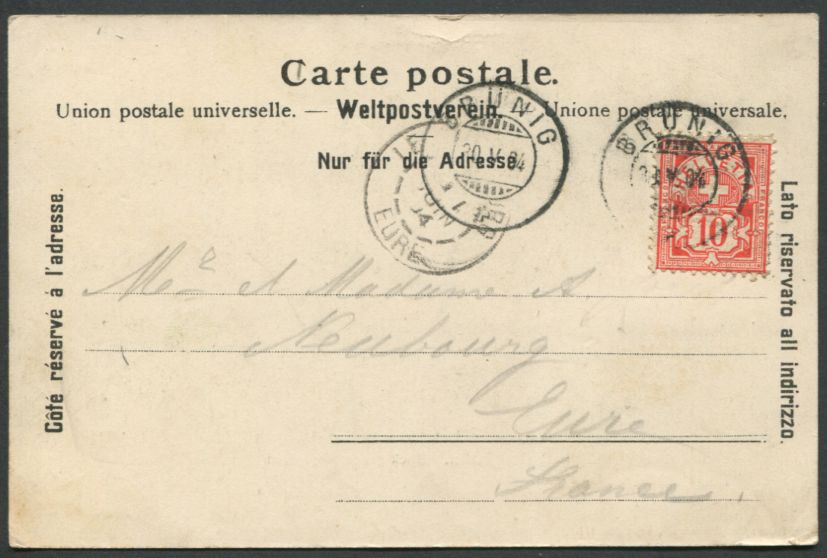 Carte postale.
Union postale universelle. — Weltpostverein. Unione postale universale.
Nur für die Adresse
Côté réservé à l'adresse.
Lato riservato all indirizzo.
BRÜNIG
30 V.04
LE
JUIN
04
EURE
BRÜNIG
V.04
HELVETIA
10
Mr et Madame A
Neubourg
Eure
France.